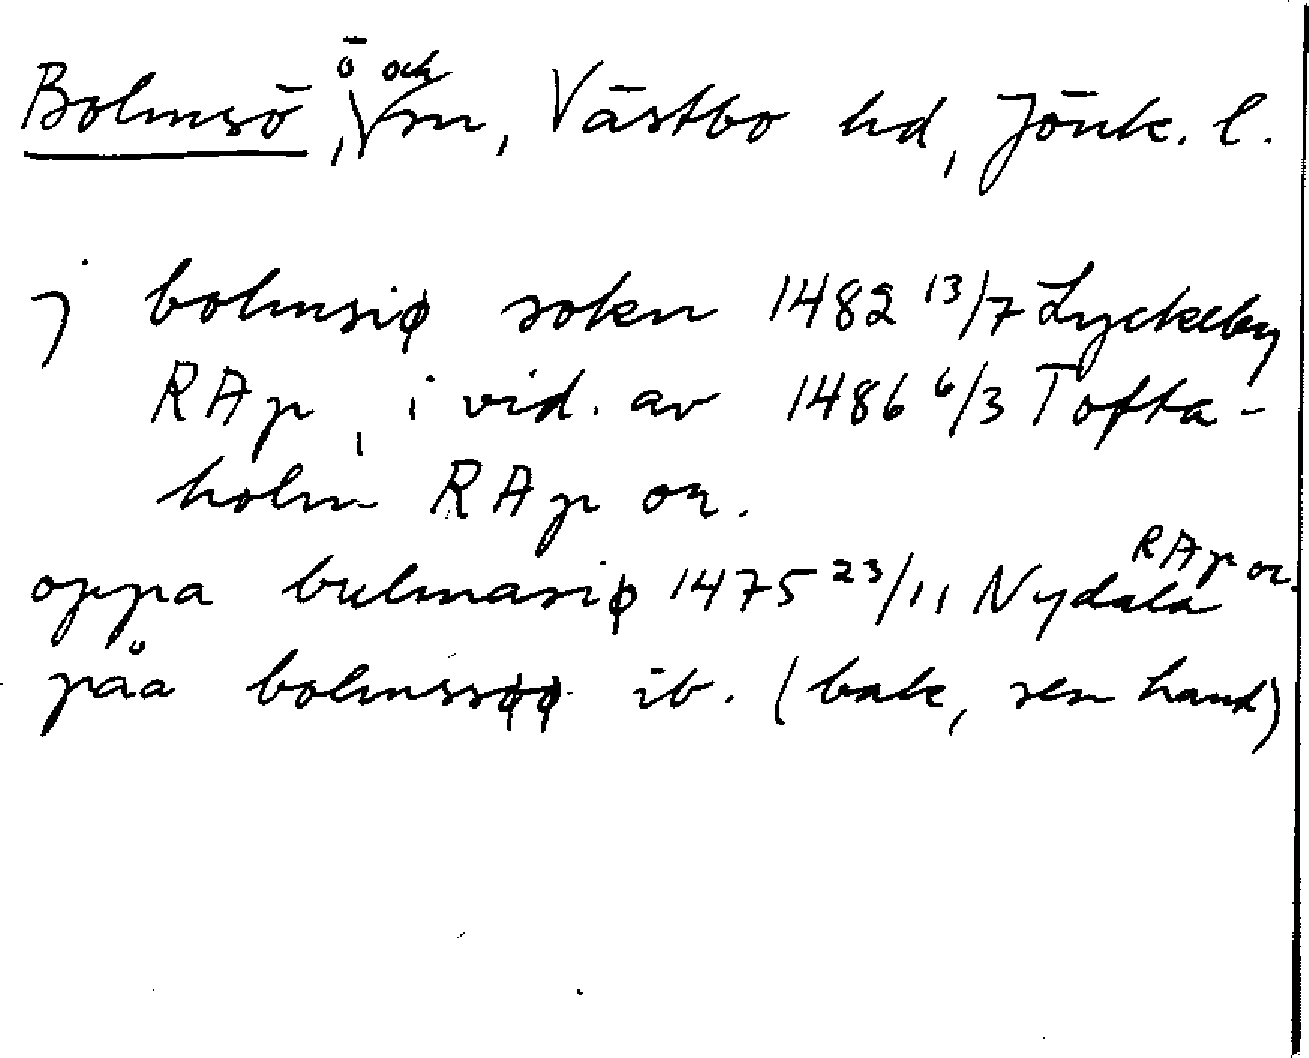 Bolmsö, ö och sn, Västbo hd, Jönk. l.
j bolmsiø soken 1482 13/7 Lyckeby
RAp, i vid. av 1486 6/3 Tofta-
holm RAp or.
oppa bulmasiø 1475 23/11 Nydala RAp or.
påa bolmssøø ib. (bak, sen hand)